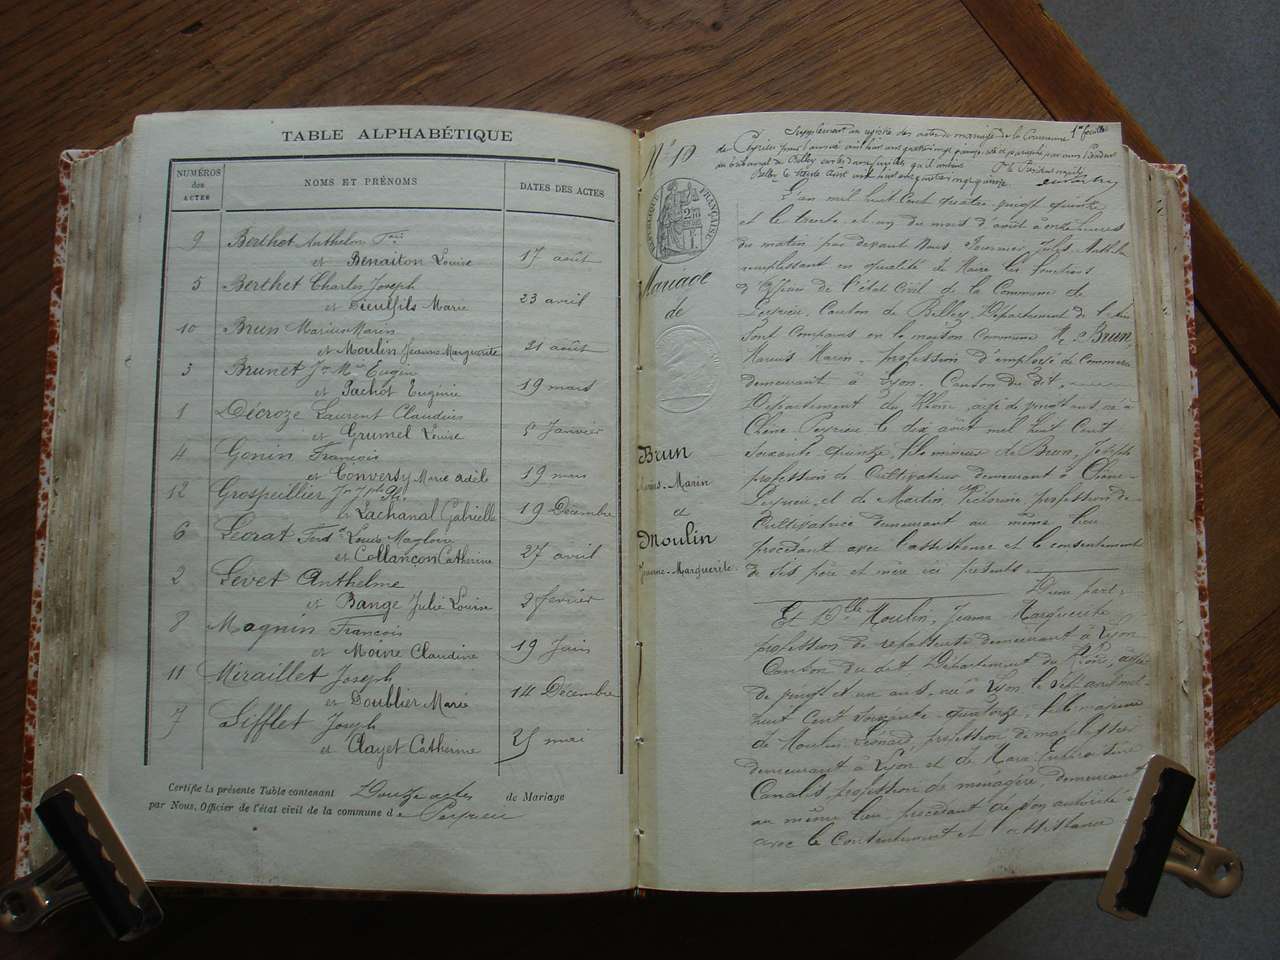 TABLE ALPHABÉTIQUE
NUMÉROS des ACTES
NOMS ET PRÉNOMS
DATES DES ACTES
9 Berthot Anthelme
et Benaiton Louise 17 août
5 Berthet Charles Joseph
et Dieulfils Marie 23 avril
10 Brun Marius Marin
et Moulin Jeanne Marguerite 21 août
3 Brunet Jn Mie Eugin
et Pachot Eugénie 19 mars
1 Décroze Laurent Claudius
et Grumel Louise 5 Janvier
4 Gonin François
et Conversy Marie adèl 19 mars
12 Grospeillier Jn Jph
et Lachanal Gabrielle 19 Décembre
6 Leorat Ferd Louis Magloire
et Collançon Catherine 27 avril
2 Levet Anthelme
et Bange Julie Louise 2 février
8 Magnin François
et Moine Claudine 19 Juin
11 Miraillet Joseph
et Doublier Marie 14 Décembre
7 Sifflet Joseph
et Clayet Catherine 25 mai
Certifie la présente Table contenant Douze actes de Mariage
par Nous, Officier de l'état civil de la commune de Peyrieu
N° 10
Supplément au registre des actes de mariage de la Commune 1er feuillet
de Peyrieu pour l'année mil huit cent quatre vingt quinze, coté et paraphé par nous Président
du tribunal de Belley
Belley le trente Août mil huit cent quatre vingt quinze
RÉPUBLIQUE FRANÇAISE
Mariage
de
Brun
Marius-Marin
et
Moulin
Jeanne-Marguerite.
L'an mil huit Cent quatre vingt quinze
et le trente et un du mois d'août à onze heures
du matin par devant Nous Fournier, Jules Anthelme
remplissant en qualité de Maire les fonctions
d'Officier de l'état Civil de la Commune de
Peyrieu, Canton de Belley, Département de l'Ain
Sont Comparus en la maison Commune Mr Brun
Marius Marin, profession d'employé de Commerce
demeurant à Lyon, Canton du dit
Département du Rhône, âgé de vingt ans né à
Chêne Peyrieu le dix août mil huit Cent
Soixante quinze, fils mineur de Brun, Joseph
profession de Cultivateur demeurant à Chêne-
Peyrieu et de Martin, Victorine, profession de
Cultivatrice demeurant au même lieu
procédant avec l'assistance et le consentement
de ses père et mère ici présents.
D'une part;
Et Dlle Moulin, Jeanne Marguerite
profession de repasseuse demeurant à Lyon
Canton du dit Département du Rhône, âgée
de vingt et un ans, née à Lyon le sept avril mil
huit Cent Soixante-quatorze, fille majeure
de Moulin Léonard, profession de
demeurant à Lyon et de
Canalis, profession de ménagère demeurant
au même lieu, procédant de son autorité
avec le Consentement et l'assistance